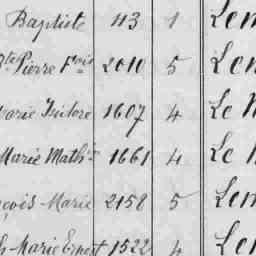 Baptiste 43 1 Lem
Bte Pierre Fois 2010 5 Len
Marie Isidore 1607 4 Le M
Marie Math 1661 4 Le
çois Marie 2158 5 Lem
Marie Ernest 1522 4 Len